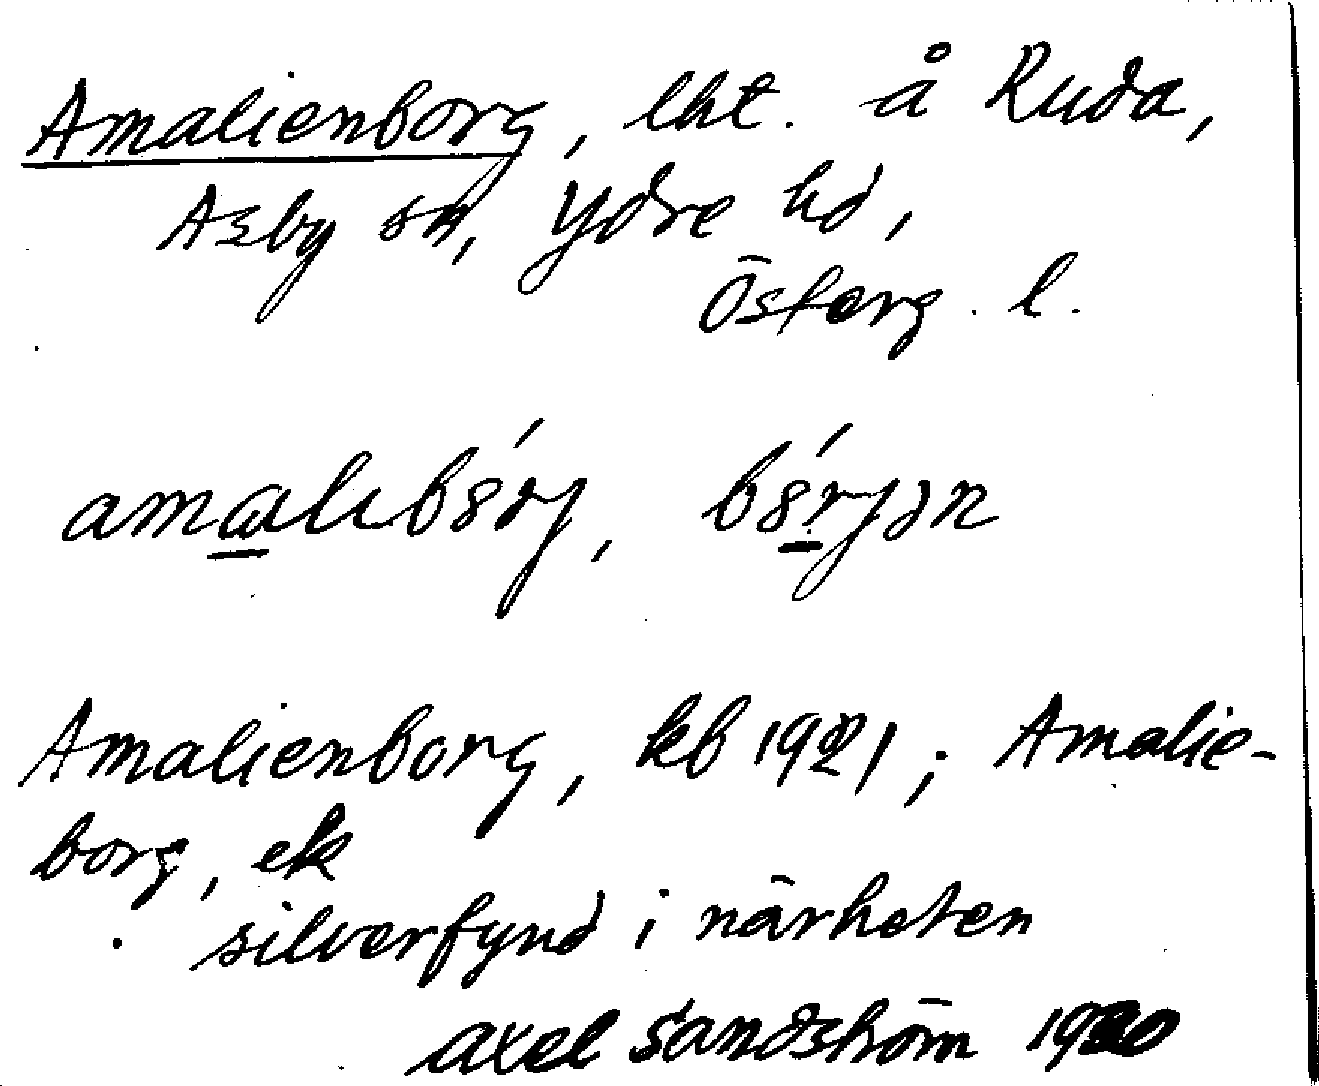 Amalienborg, lht. å Ruda,
Asby sn, Ydre hd,
Österg. l.
Amalienborg, kb 1921; Amalie-
borg, ek
silverfynd i närheten
Axel Sandström